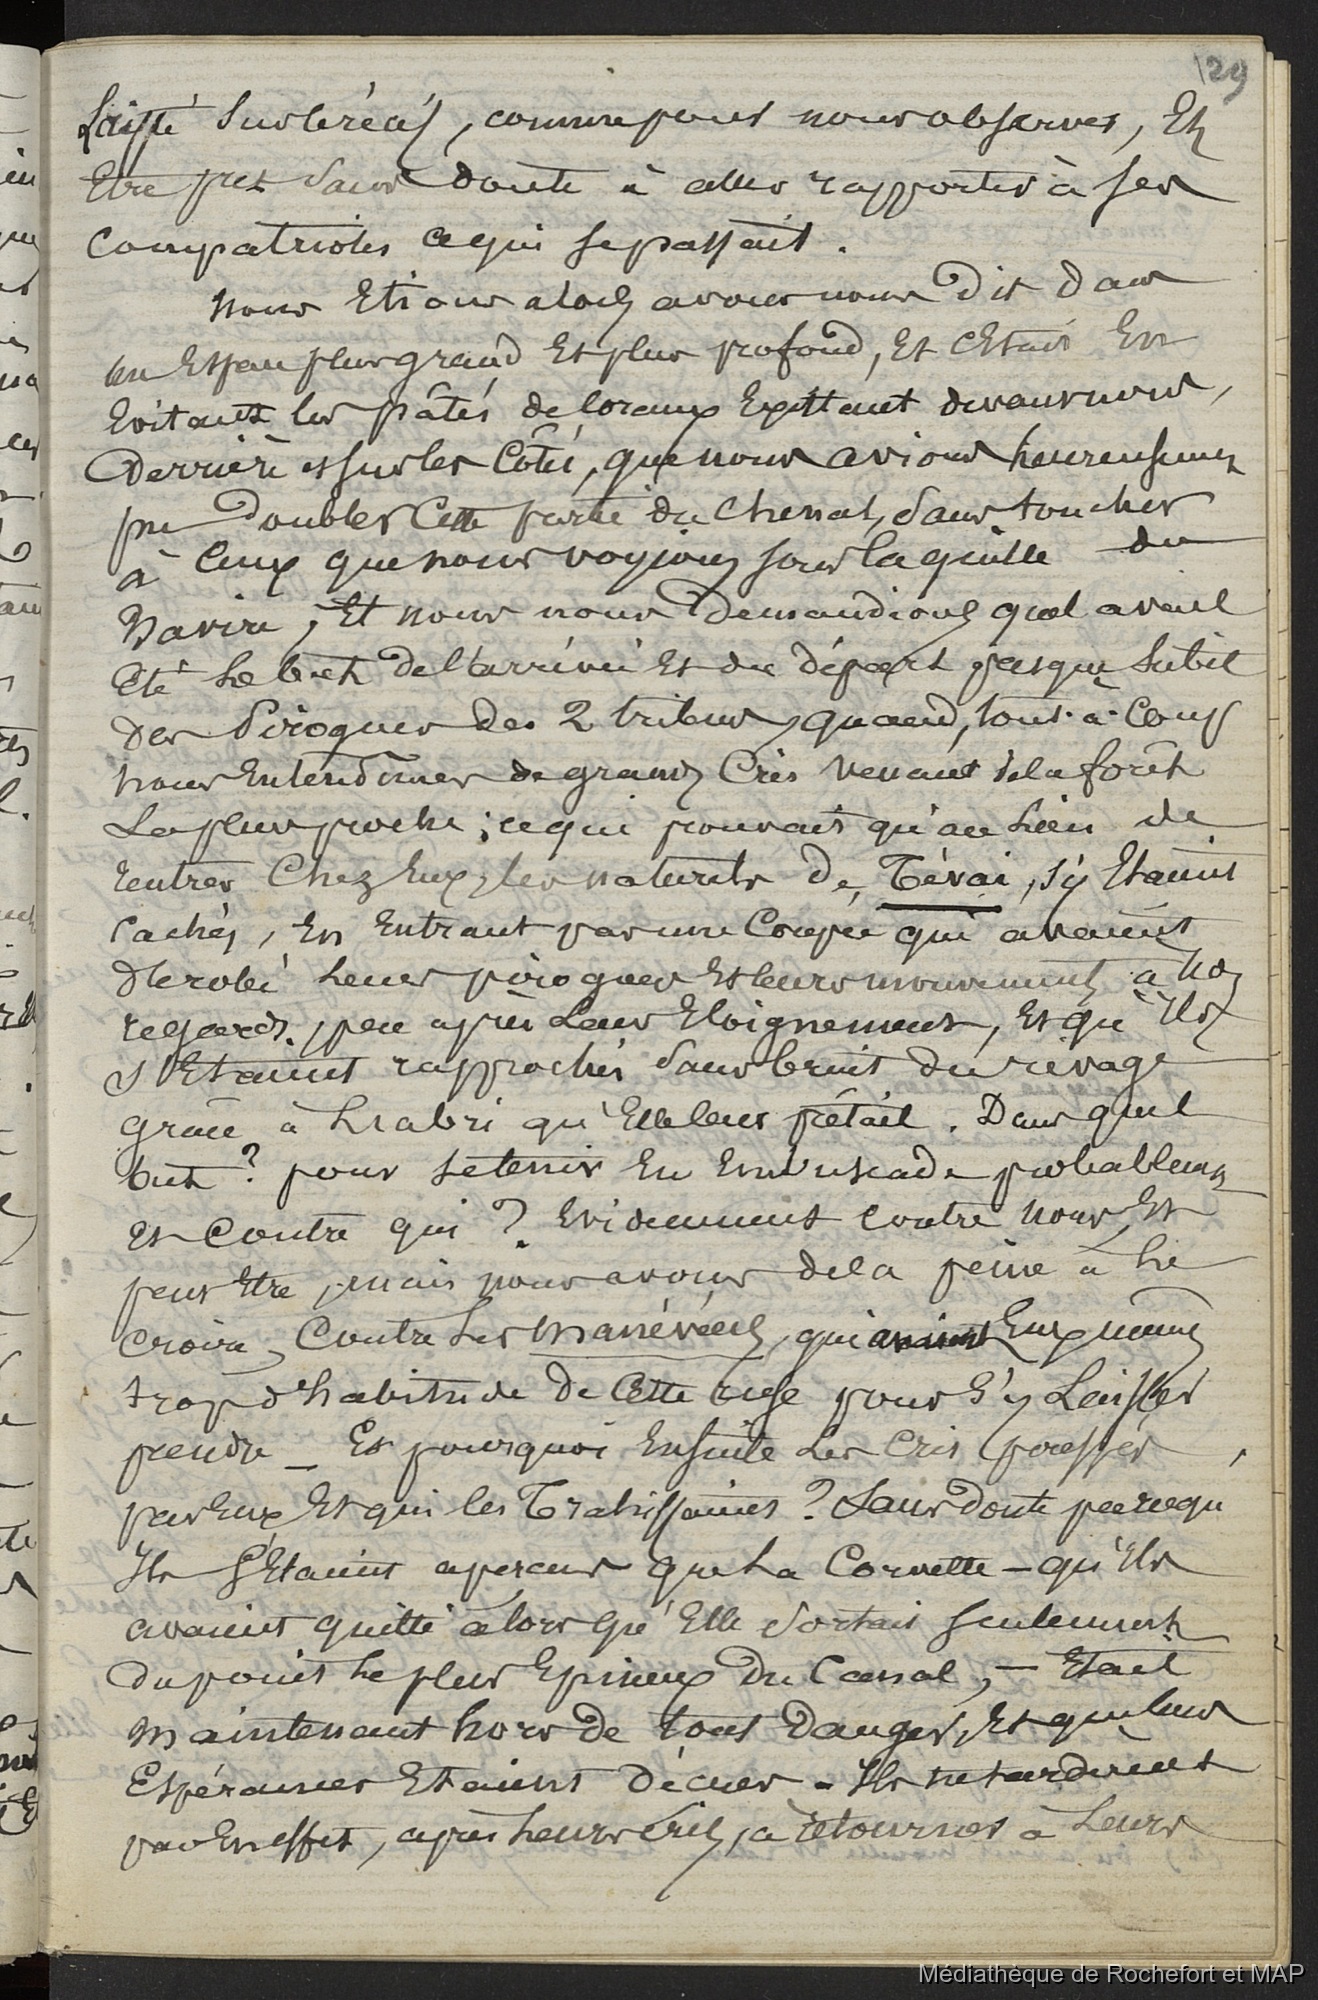 129
Laissé sur le récif, comme pour nous observer, Et
Etre pret sans doute à aller rapporter à ses
compatriotes ce qui se passait.
Nous Etions alors avons nous dit dans
un Espace plus grand Et plus profond, Et c'Etait En
Evitant les pâtés de coraux Existant devant nous,
Derrière et sur les côtés, que nous avions heureusement
pu doubler Cette partie du chenal, sans toucher
à Ceux que nous voyions sous la quille du
Navire, Et nous nous demandions quel avait
Eté le but de l'arrivée Et du départ presque subit
Des Pirogues des 2 tribus, quand, tout-à-coup
nous Entendîmes de grands Cris venant de la forêt
La plus proche; ce qui prouvait qu'au Lieu de
rentrer Chez Eux, les naturels de Tévai, s'y Etaient
cachés, En Entrant par une Coupée qui avaient
dérobé leurs pirogues Et leurs mouvements à nos
regards, peu après Leur Eloignement, Et qu'Ils
s'Etaient rapprochés sans bruit du rivage
grâce à L'abri qu'Elle leur prêtait. Dans quel
but? pour se tenir En Embuscade probablement
Et contre qui? Evidemment contre nous Et
peut Etre, mais nous avons de la peine à le
croire, Contre Les Manévéens, qui avaient Eux mêmes
trop d'habitude de Cette ruse pour s'y Laisser
prendre — Et pourquoi Ensuite Les Cris poussés
par Eux Et qui les Trahissaient? Sans doute parcequ'
Ils s'Etaient apercus que La Corvette – qu'Ils
avaient quitté alors qu'Elle sortait seulement
du point le plus Epineux du Canal, – Etait
maintenant hors de tout danger, Et que leurs
Espérances Etaient décues – Ils ne tardèrent
pas En effet, après leurs Cris, à retourner à Leurs
Médiathèque de Rochefort et MAP